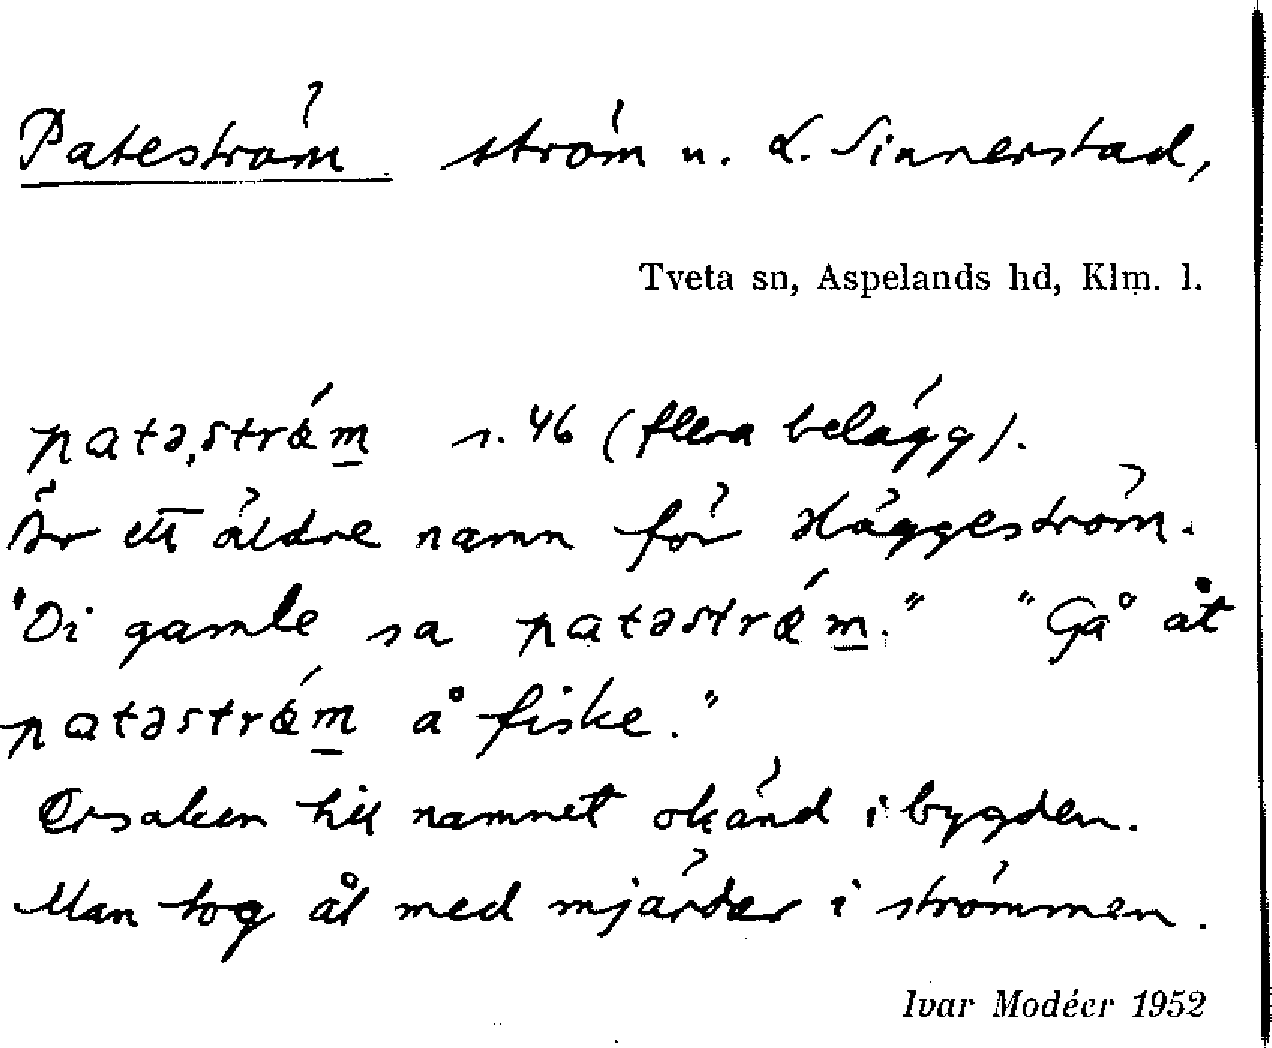 Pateström ström n. L. Sinnerstad,
Tveta sn, Aspelands hd, Klm. l.
patəˌstrǿm s. 46 (flera belägg).
Är ett äldre namn för Häggeström.
"Di gamle sa patəstrǿm." "Gå åt
patəstrǿm å fiske."
Orsaken till namnet okänd i bygden.
Man tog ål med mjärdar i strömmen.
Ivar Modéer 1952